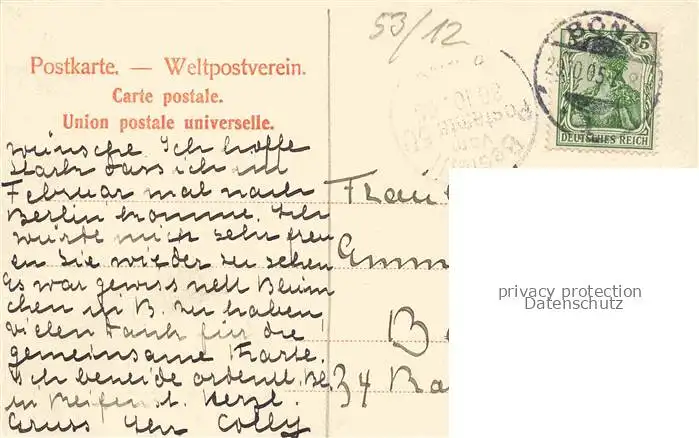 53/12
Postkarte. — Weltpostverein.
Carte postale.
Union postale universelle.
BON
5
DEUTSCHES REICH
Bestellt
vom
Postamte
wünsche. Ich hoffe
stark dass ich im
Februar mal nach
Berlin komme. Ich
würde mich sehr freu
en Sie wieder zu sehen
Es war gewiss nett Blüm
chen in B. zu haben!
vielen Dank für die
gemeinsame Karte.
Ich beneide ordentl.
in Meifenst. Herzl.
Gruss Ihr Colly
Fräul
B
34
privacy protection
Datenschutz